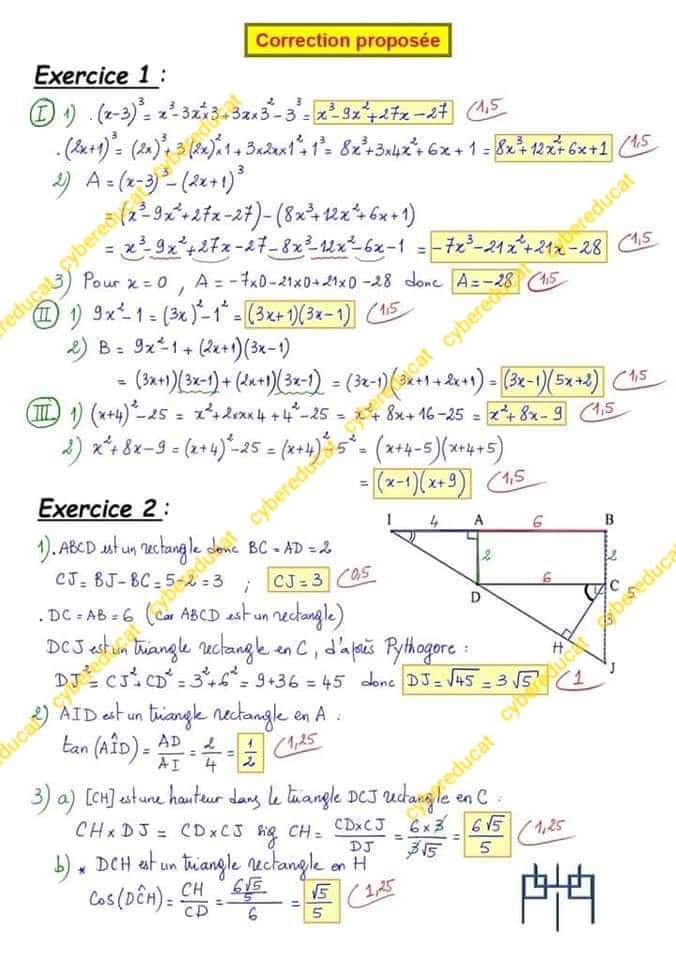 Correction proposée
Exercice 1 :
I 1) . (x-3)³ = x³-3x²×3+3x×3²-3³ = x³-9x²+27x-27 1,5
. (2x+1)³ = (2x)³+3(2x)²×1+3×2x×1²+1³ = 8x³+3×4x²+6x+1 = 8x³+12x²+6x+1 1,5
2) A = (x-3)³-(2x+1)³
= (x³-9x²+27x-27)-(8x³+12x²+6x+1)
= x³-9x²+27x-27-8x³-12x²-6x-1 = -7x³-21x²+21x-28 1,5
3) Pour x=0 , A = -7×0-21×0+21×0-28 donc A=-28 1,5
II 1) 9x²-1 = (3x)²-1² = (3x+1)(3x-1) 1,5
2) B = 9x²-1+(2x+1)(3x-1)
= (3x+1)(3x-1)+(2x+1)(3x-1) = (3x-1)(3x+1+2x+1) = (3x-1)(5x+2) 1,5
III 1) (x+4)²-25 = x²+2×x×4+4²-25 = x²+8x+16-25 = x²+8x-9 1,5
2) x²+8x-9 = (x+4)²-25 = (x+4)²-5² = (x+4-5)(x+4+5)
= (x-1)(x+9) 1,5
Exercice 2 :
I 4 A 6 B
2 2
6
D C 5
3
H
J
1) . ABCD est un rectangle donc BC = AD = 2
CJ = BJ-BC = 5-2 = 3 ; CJ = 3 0,5
. DC = AB = 6 (car ABCD est un rectangle)
DCJ est un triangle rectangle en C , d'après Pythagore :
DJ² = CJ²+CD² = 3²+6² = 9+36 = 45 donc DJ = √45 = 3√5 1
2) AID est un triangle rectangle en A :
tan(AÎD) = AD/AI = 2/4 = 1/2 1,25
3) a) [CH] est une hauteur dans le triangle DCJ rectangle en C :
CH×DJ = CD×CJ sig CH = CD×CJ/DJ = 6×3/3√5 = 6√5/5 1,25
b) * DCH est un triangle rectangle en H
Cos(DĈH) = CH/CD = (6√5/5)/6 = √5/5 1,25
cybereducat
cybereducat
cybereducat
cybereducat
cybereducat
cybereducat
cybereducat
cybereducat